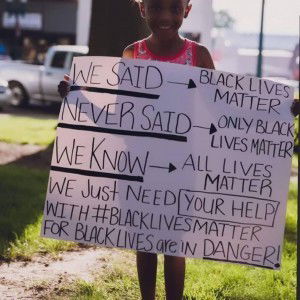 WE SAID → BLACK LIVES
MATTER
NEVER SAID → ONLY BLACK
LIVES MATTER
WE KNOW → ALL LIVES
MATTER
WE JUST NEED YOUR HELP
WITH #BLACKLIVESMATTER
FOR BLACK LIVES ARE IN DANGER!